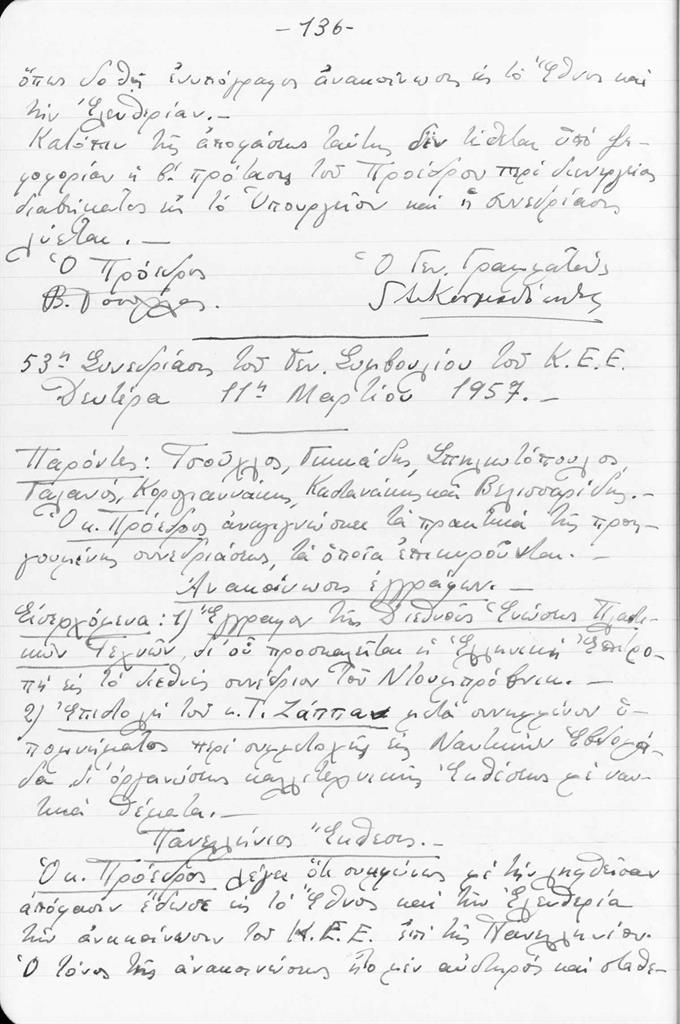 -136-
ὅπως δοθῇ ἐνυπόγραφος ἀνακοίνωσις εἰς τὸ Ἔθνος καὶ
τὴν Ἐλευθερίαν.-
Κατόπιν τῆς ἀποφάσεως ταύτης δὲν τίθεται ὑπὸ ψη-
φοφορίαν ἡ β' πρότασις τοῦ Προέδρου περὶ διενεργείας
διαβήματος εἰς τὸ Ὑπουργεῖον καὶ ἡ συνεδρίασις
λύεται.-
Ὁ Πρόεδρος Ὁ Γεν. Γραμματεὺς
Β. Τσούχλος.
53η Συνεδρίασις τοῦ Γεν. Συμβουλίου τοῦ Κ.Ε.Ε.
Δευτέρα 11η Μαρτίου 1957.-
Παρόντες: Τσούχλος, Γικιάδης, Σπηλιωτόπουλος,
Γαλανός, Κορογιαννάκης, Καστανάκης καὶ Βελισσαρίδης.-
Ὁ κ. Πρόεδρος ἀναγιγνώσκει τὰ πρακτικὰ τῆς προη-
γουμένης συνεδριάσεως, τὰ ὁποῖα ἐπικυροῦνται.-
Ἀνακοίνωσις ἐγγράφων.-
Εἰσερχόμενα: 1) Ἔγγραφον τῆς Διεθνοῦς Ἑνώσεως Πλαστι-
κῶν Τεχνῶν, δι' οὗ προσκαλεῖται ἡ Ἑλληνικὴ Ἐπιτρο-
πὴ εἰς τὸ διεθνὲς συνέδριον τοῦ Ντουμπρόβνικ.-
2) Ἐπιστολὴ τοῦ κ. Τ. Ζάππα μετὰ συνημμένου ὑ-
πομνήματος περὶ συμμετοχῆς εἰς Ναυτικὴν Ἑβδομά-
δα δι' ὀργανώσεως καλλιτεχνικῆς Ἐκθέσεως μὲ ναυ-
τικὰ θέματα.-
Πανελλήνιος Ἔκθεσις.-
Ὁ κ. Πρόεδρος λέγει ὅτι συμφώνως μὲ τὴν ληφθεῖσαν
ἀπόφασιν ἔδωσε εἰς τὸ Ἔθνος καὶ τὴν Ἐλευθερία
τὴν ἀνακοίνωσιν τοῦ Κ.Ε.Ε. ἐπὶ τῆς Πανελληνίου.
Ὁ τόνος τῆς ἀνακοινώσεως ἦτο μὲν αὐστηρὸς καὶ σταθε-